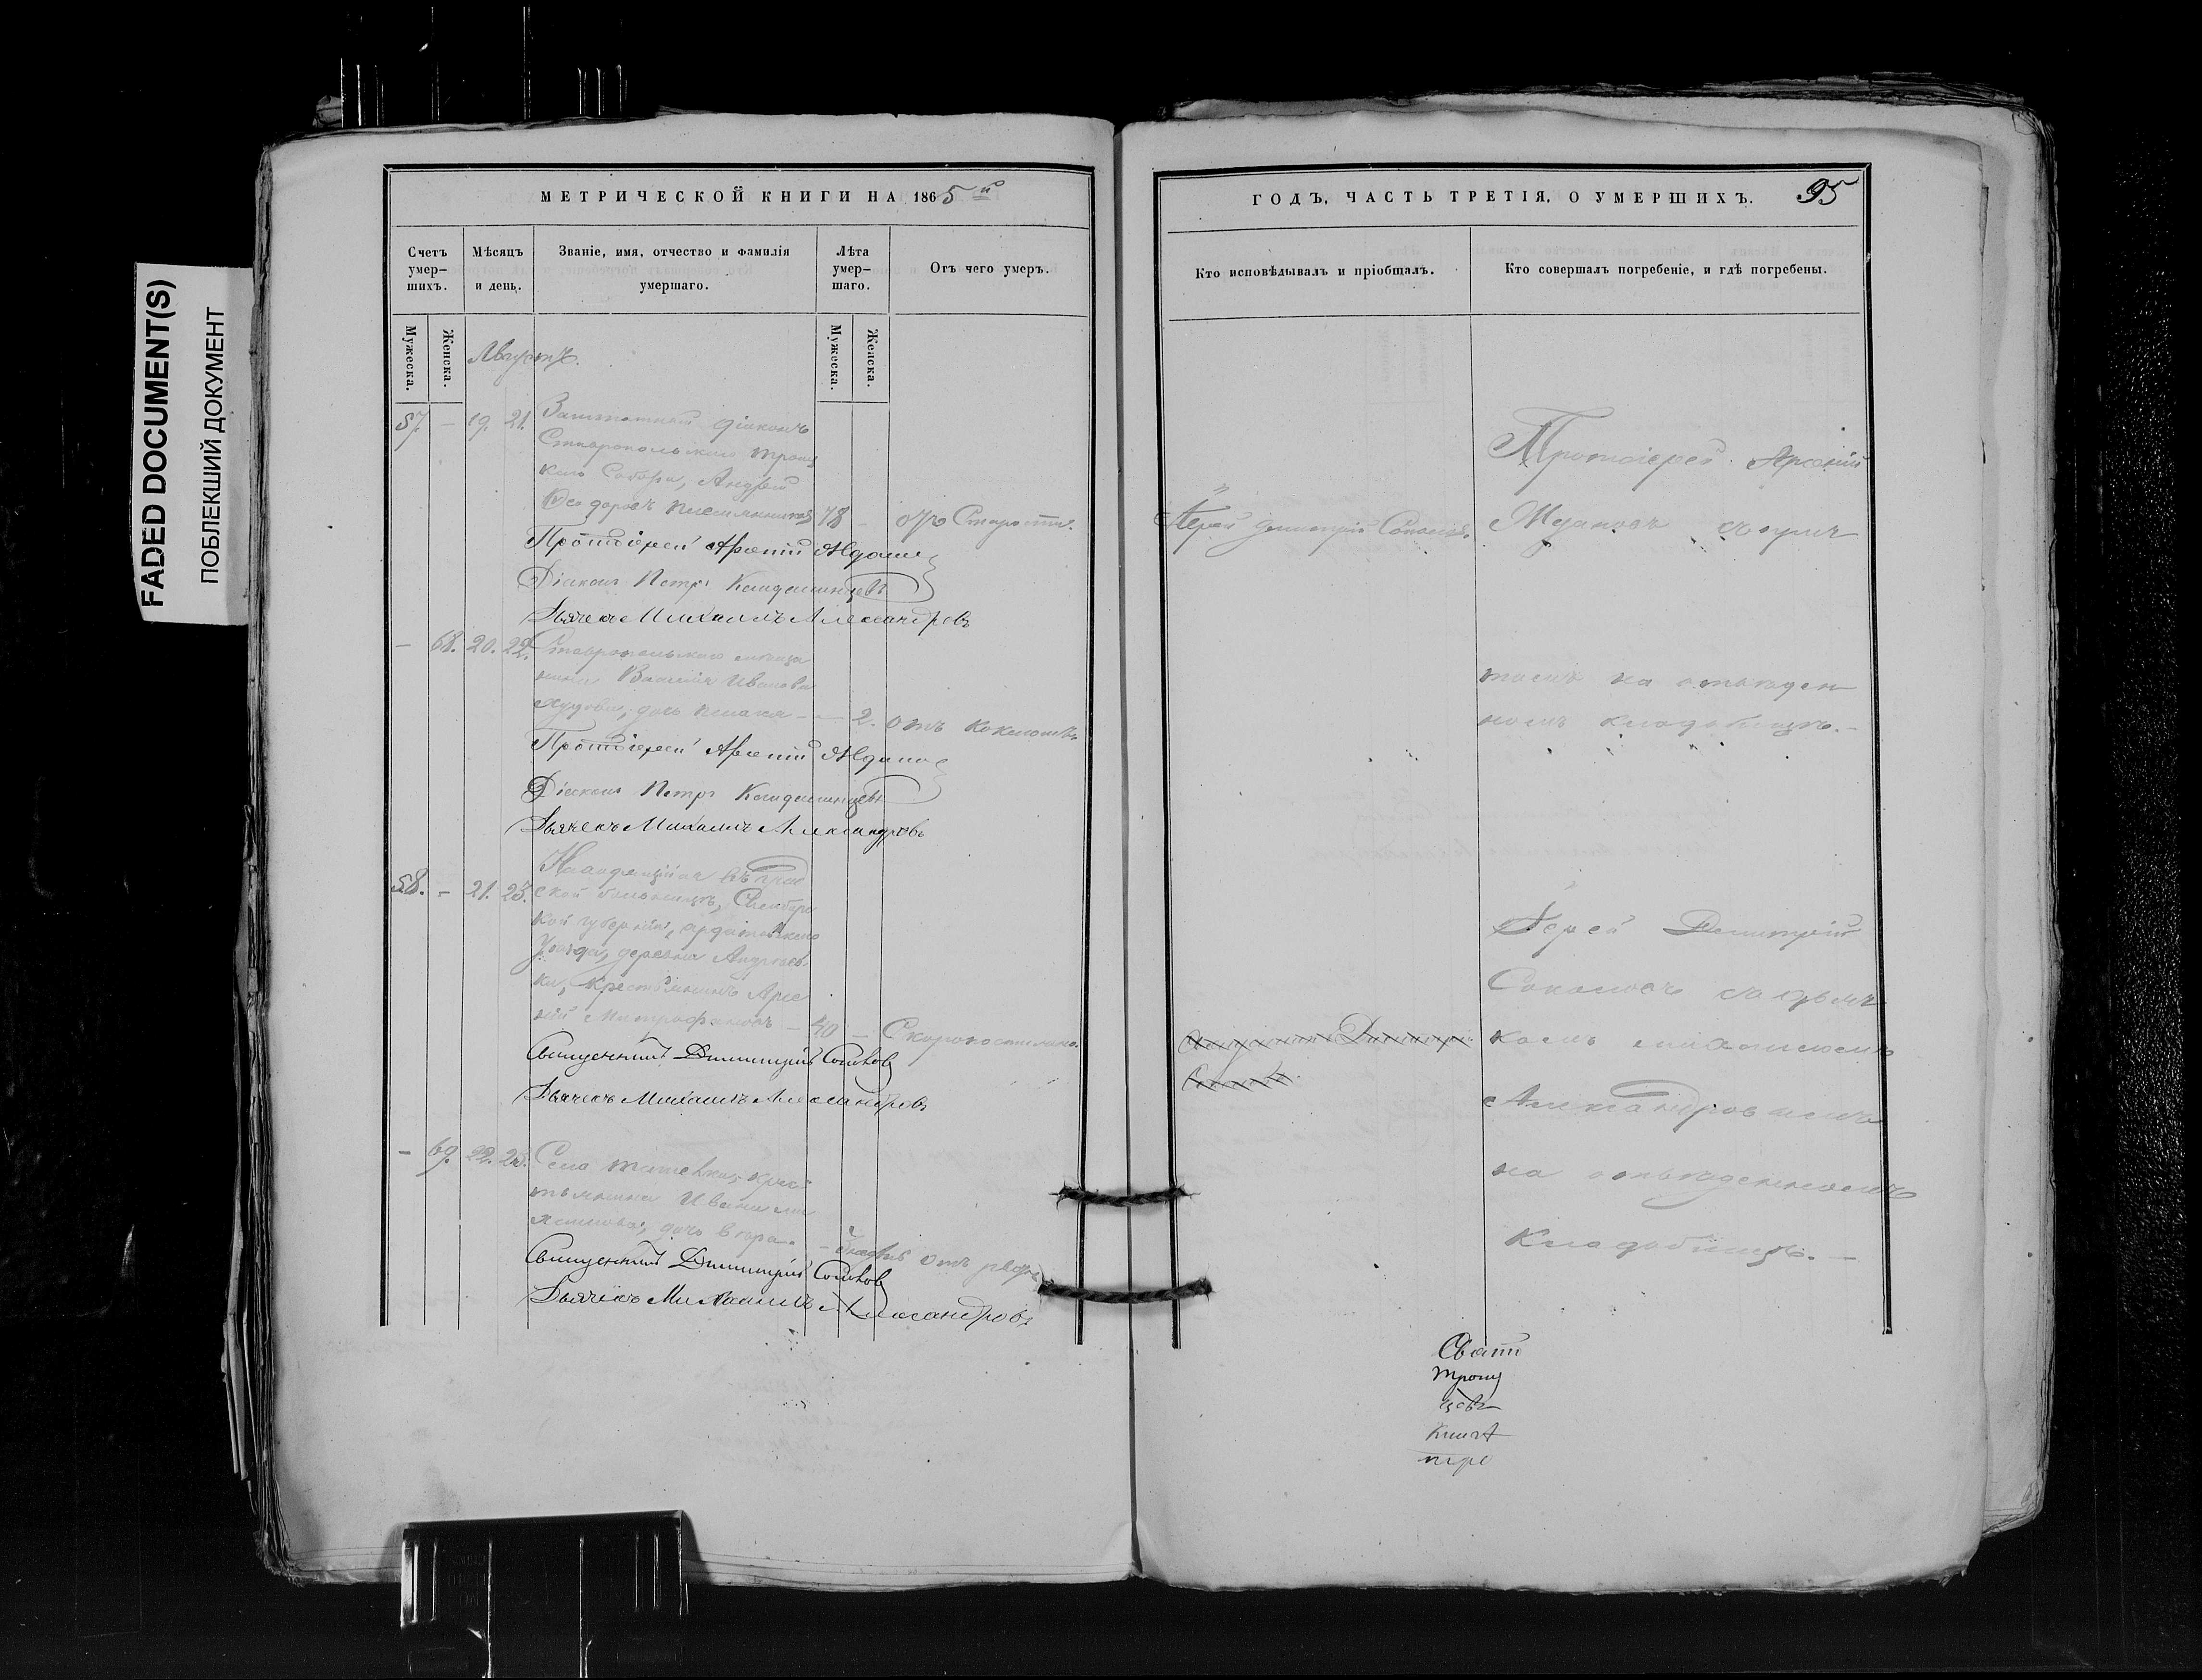 FADED DOCUMENT(S)
ПОБЛЕКШИЙ ДОКУМЕНТ
МЕТРИЧЕСКОЙ КНИГИ НА 1865й
Счетъ умер-шихъ.
Мѣсяцъ и день.
Званіе, имя, отчество и фамилія умершаго.
Лѣта умер-шаго.
Отъ чего умеръ.
Мужеска.
Женска.
Мужеска.
Женска.
Августъ.
57. – 19. 21. Заштатный діаконъ
Ставропольскаго Троиц
каго Собора, Андрей
Ѳеодоровъ 78 – отъ Старости.
Протоіерей Арсеній Ждано
Діаконъ Петръ
Дьячекъ Михаилъ Александровъ
– 68. 20. 22. Ставропольскаго мѣща
нина Василія Иванова
дочь – – 2. отъ коклюша
Протоіерей Арсеній Ждано
Діаконъ Петръ
Дьячекъ Михаилъ Александровъ
58. – 21. 23. Находящійся въ град
ской больницѣ, Симбирс
кой губерніи, ардатовскаго
уѣзда, деревни Андреев
ки, крестьянинъ Арсе
ній Митрофановъ – 40 – Скоропостижно.
Священникъ Димитрій Соколов
Дьячекъ Михаилъ Александровъ
– 69. 22. 23. Села крес
тьянина Ивана
дочь – отъ
Священникъ Димитрій Соколов
Дьячекъ Михаилъ Александровъ
ГОДЪ, ЧАСТЬ ТРЕТІЯ, О УМЕРШИХЪ. 95
Кто исповѣдывалъ и пріобщалъ.
Кто совершалъ погребеніе, и гдѣ погребены.
Протоіерей Арсеній
Іерей Димитрій Соколовъ.
Ждановъ съ прич
томъ на отведен
номъ кладбищѣ. –
Іерей Димитрій
Соколовъ съ дьяч
комъ Михаиломъ
Александровымъ
на отведенномъ
Кладбищѣ. –
Свято
Троиц
книга